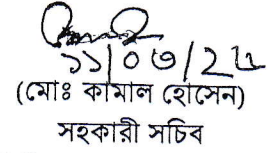 ১১/০৩/২৪
(মোঃ কামাল হোসেন)
সহকারী সচিব